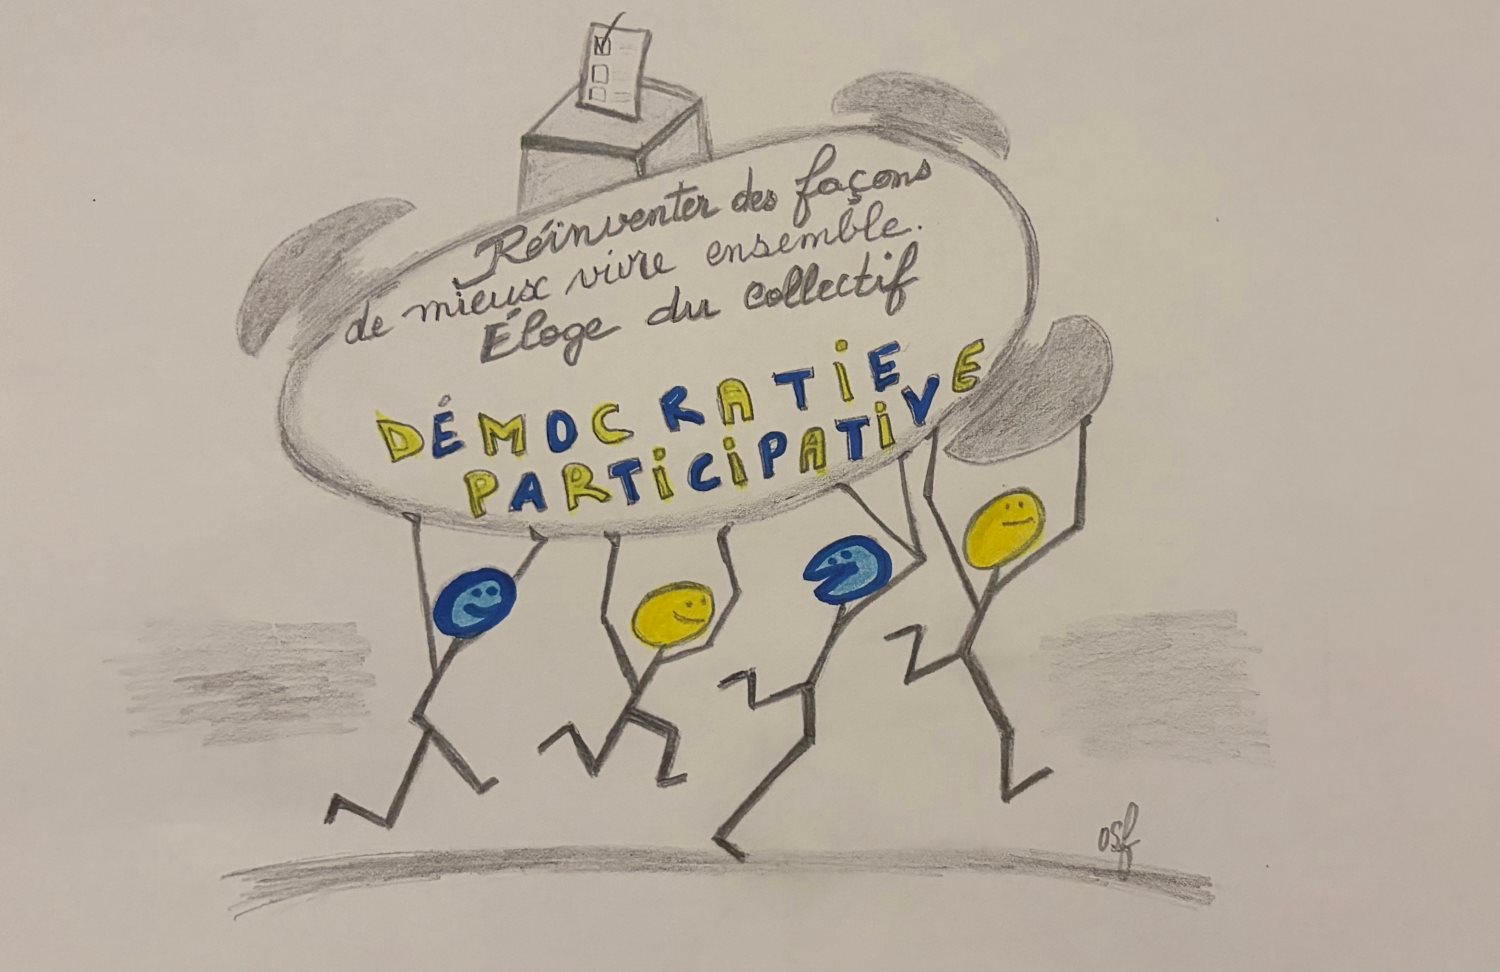 Réinventer des façons
de mieux vivre ensemble.
Éloge du collectif
DÉMOCRATIE
PARTICIPATIVE
osf